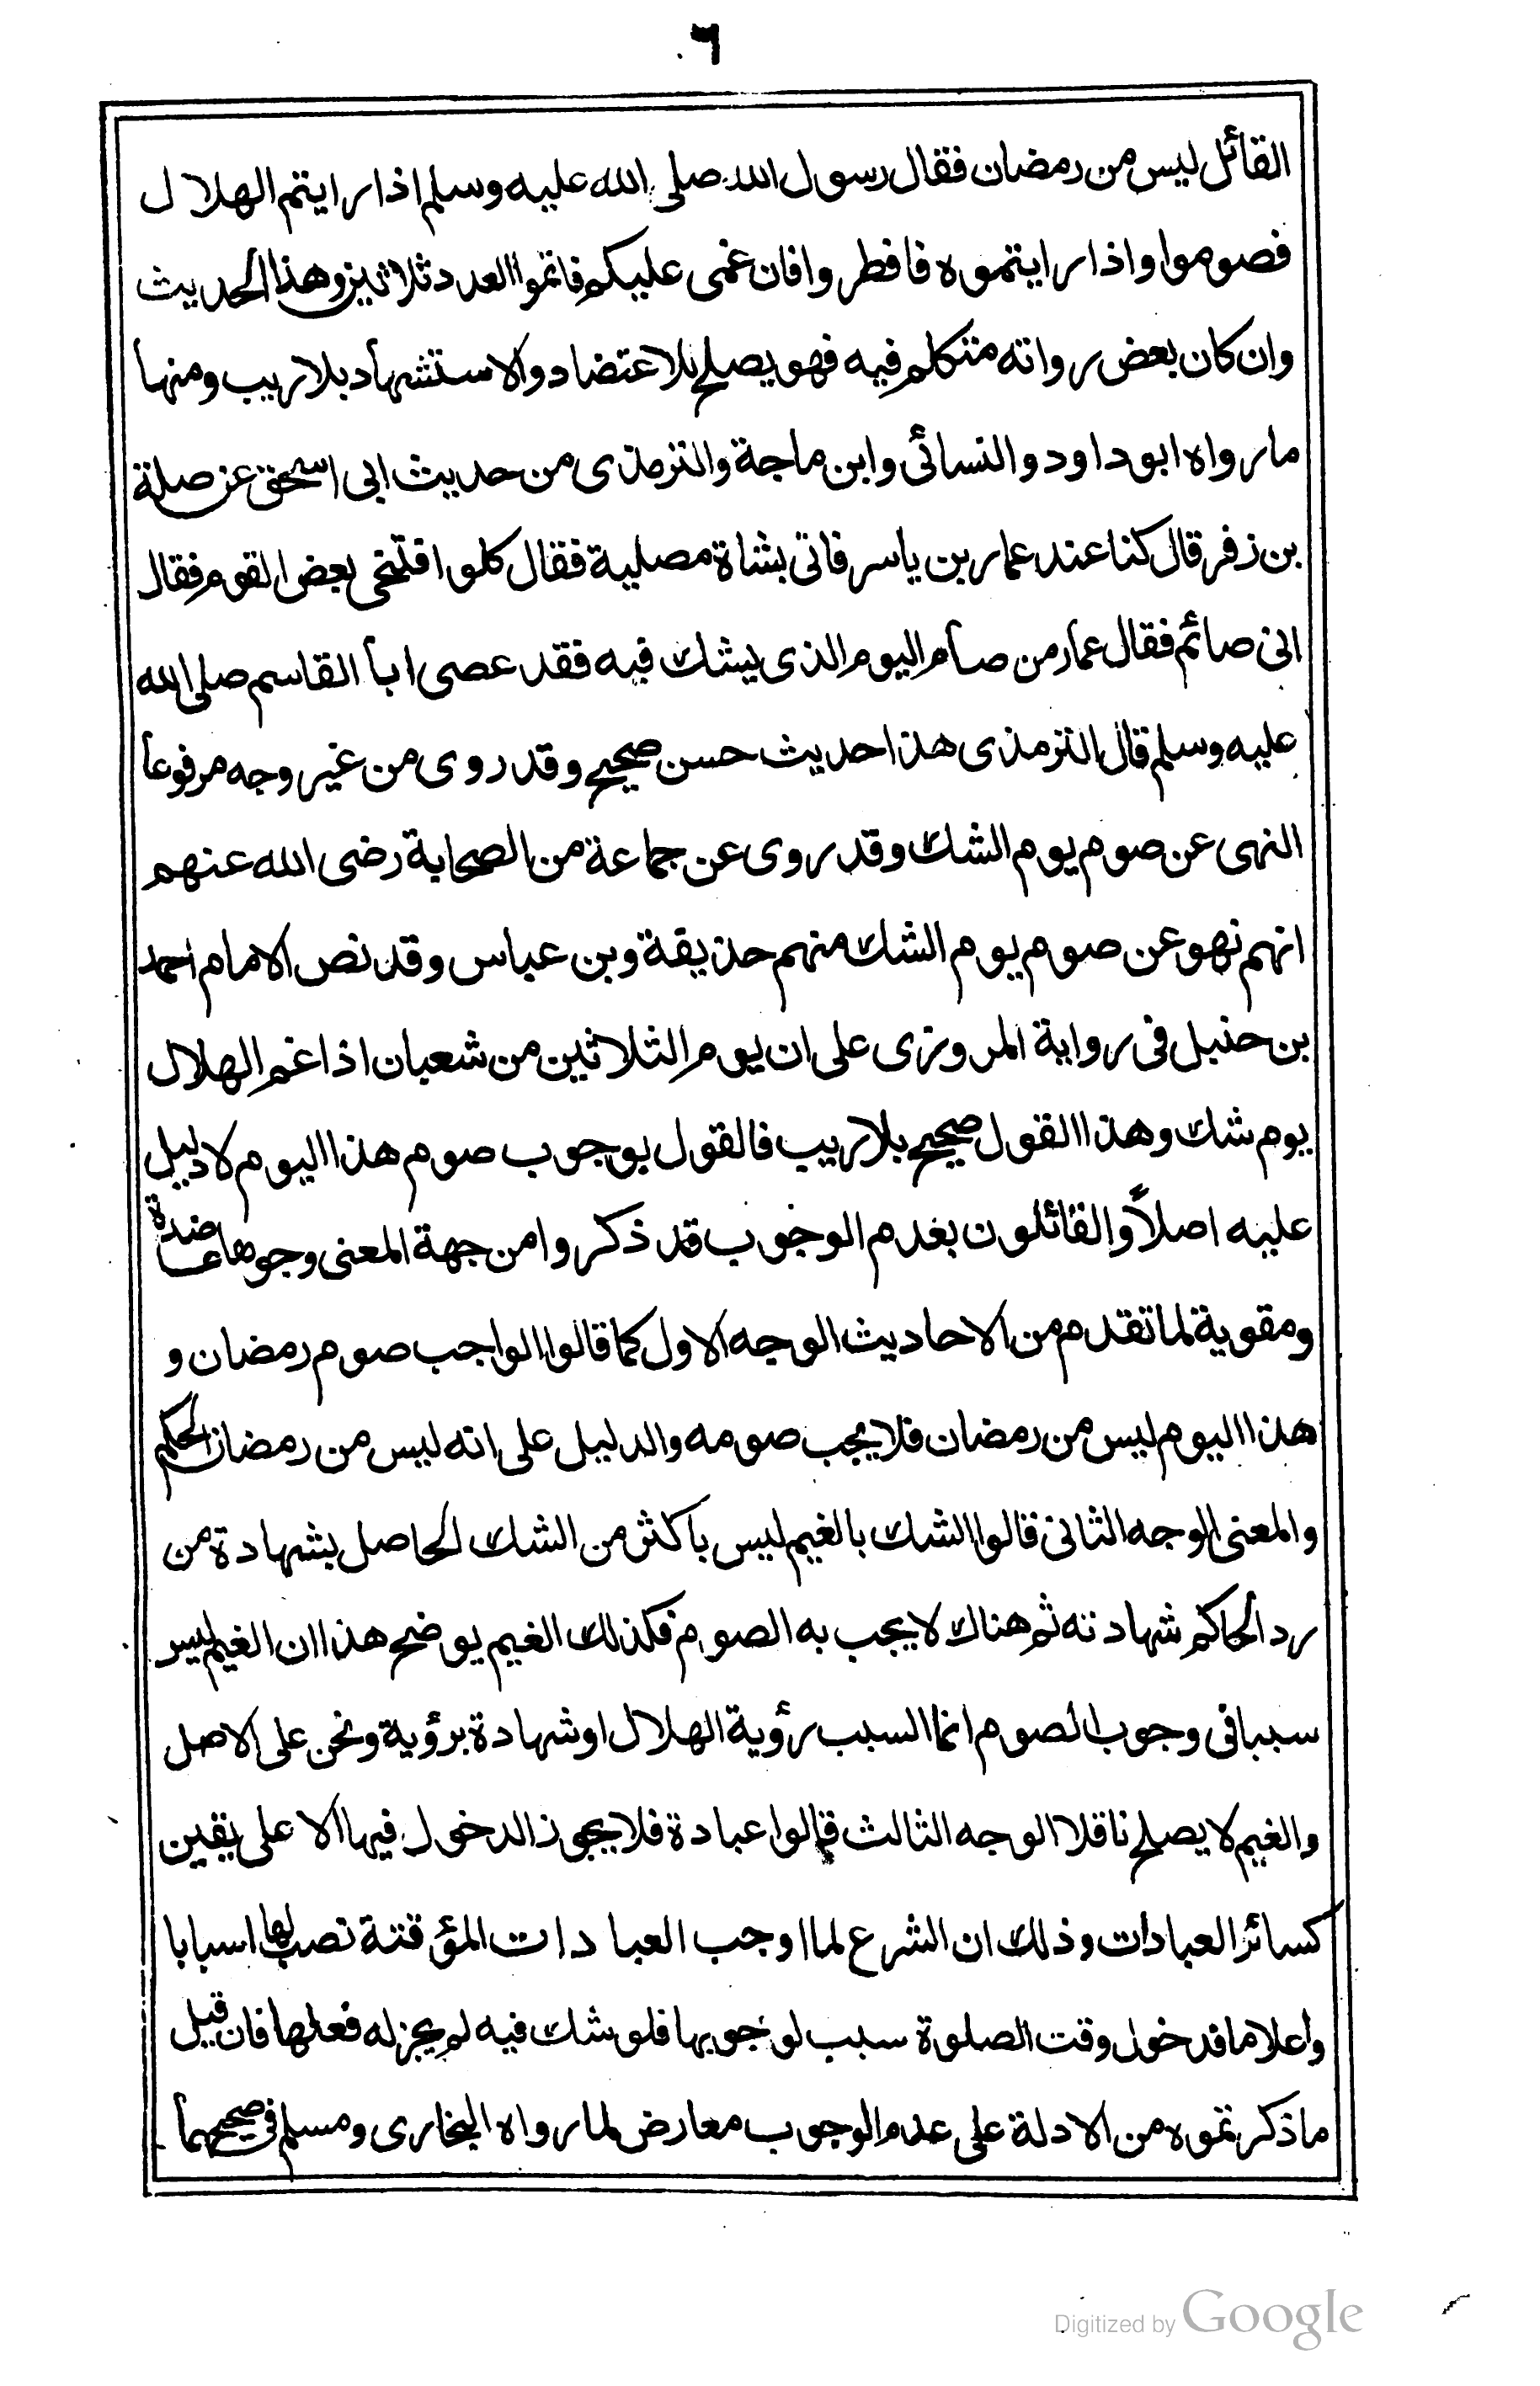 ٦
القائل ليس من رمضان فقال رسول الله صلى الله عليه وسلم اذا رايتم الهلال
فصوموا واذا رايتموه فافطروا فان غمى عليكم فاتموا العدد ثلاثين وهذا الحديث
وان كان بعض رواته متكلم فيه فهو يصلح للاعتضاد والاستشهاد بلا ريب ومنها
ما رواه ابو داود والنسائى وابن ماجة والترمذى من حديث ابى اسحق عن صلة
بن زفر قال كنا عند عمار بن ياسر فاتى بشاة مصلية فقال كلوا فتنحى بعض القوم فقال
انى صائم فقال عمار من صام اليوم الذى يشك فيه فقد عصى ابا القاسم صلى الله
عليه وسلم قال الترمذى هذا حديث حسن صحيح وقد روى من غير وجه مرفوعا
النهى عن صوم يوم الشك وقد روى عن جماعة من الصحابة رضى الله عنهم
انهم نهو عن صوم يوم الشك منهم حذيفة وبن عباس وقد نص الامام احمد
بن حنبل فى رواية المروزى على ان يوم الثلاثين من شعبان اذا غم الهلال
يوم شك وهذا القول صحيح بلا ريب فالقول بوجوب صوم هذا اليوم لا دليل
عليه اصلاً والقائلون بعدم الوجوب قد ذكروا من جهة المعنى وجوها عاضدة
ومقوية لما تقدم من الاحاديث الوجه الاول كما قالوا الواجب صوم رمضان و
هذا اليوم ليس من رمضان فلا يجب صومه والدليل على انه ليس من رمضان الحكم
والمعنى الوجه الثانى قالوا الشك بالغيم ليس باكثر من الشك الحاصل بشهادة من
رد الحاكم شهادته ثم هناك لا يجب به الصوم فكذلك الغيم يوضح هذا ان الغيم ليس
سببا فى وجوب الصوم انما السبب رؤية الهلال او شهادة برؤية ونحن على الاصل
والغيم لا يصلح ناقلا الوجه الثالث قالوا عبادة فلا يجوز الدخول فيها الا على يقين
كسائر العبادات وذلك ان الشرع لما اوجب العبادات المؤقتة نصب لها اسبابا
واعلاما فدخول وقت الصلوة سبب لوجوبها فلو شك فيه لم يجز له فعلها فان قيل
ما ذكرتموه من الادلة على عدم الوجوب معارض لما رواه البخارى ومسلم فى صحيحهما
Digitized by Google